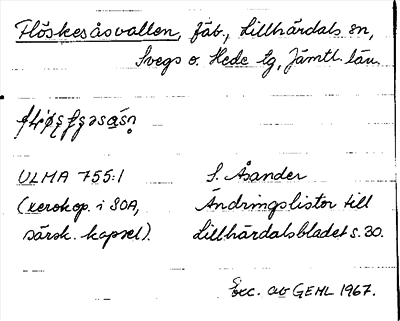 Flöskesåsvallen, fäb., Lillhärdals sn,
Svegs o. Hede tg, Jämtl. län.
ULMA 755:1 S. Åsander
(xerokop. i SOA, Ändringslistor till
särsk. kapsel). Lillhärdalsbladet s. 30.
Exc. av GEHL 1967.